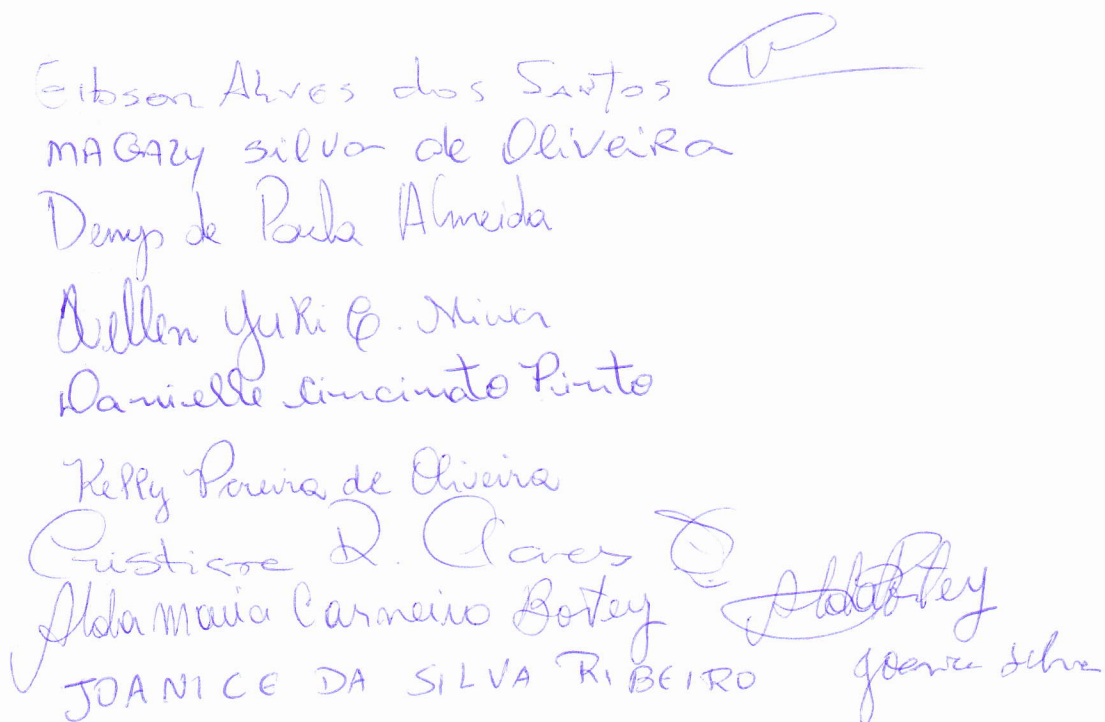 Gibson Alves dos Santos
MAGAZY silva de Oliveira
Denys de Paula Almeida
Yuki
Danielle Cincinato Pinto
Kelly Pereira de Oliveira
Cristiane R.
Alda Maria Carneiro Bortey
JOANICE DA SILVA RIBEIRO Joanice Silva